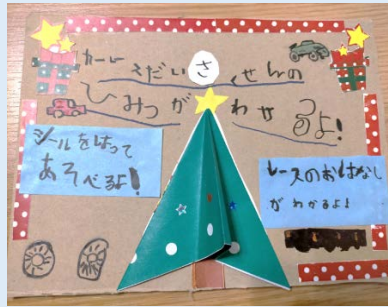 カーレえだいさくせんの
ひみつがわかるよ!
シールをはって
あそべるよ!
レースのおはなし
がわかるよ!